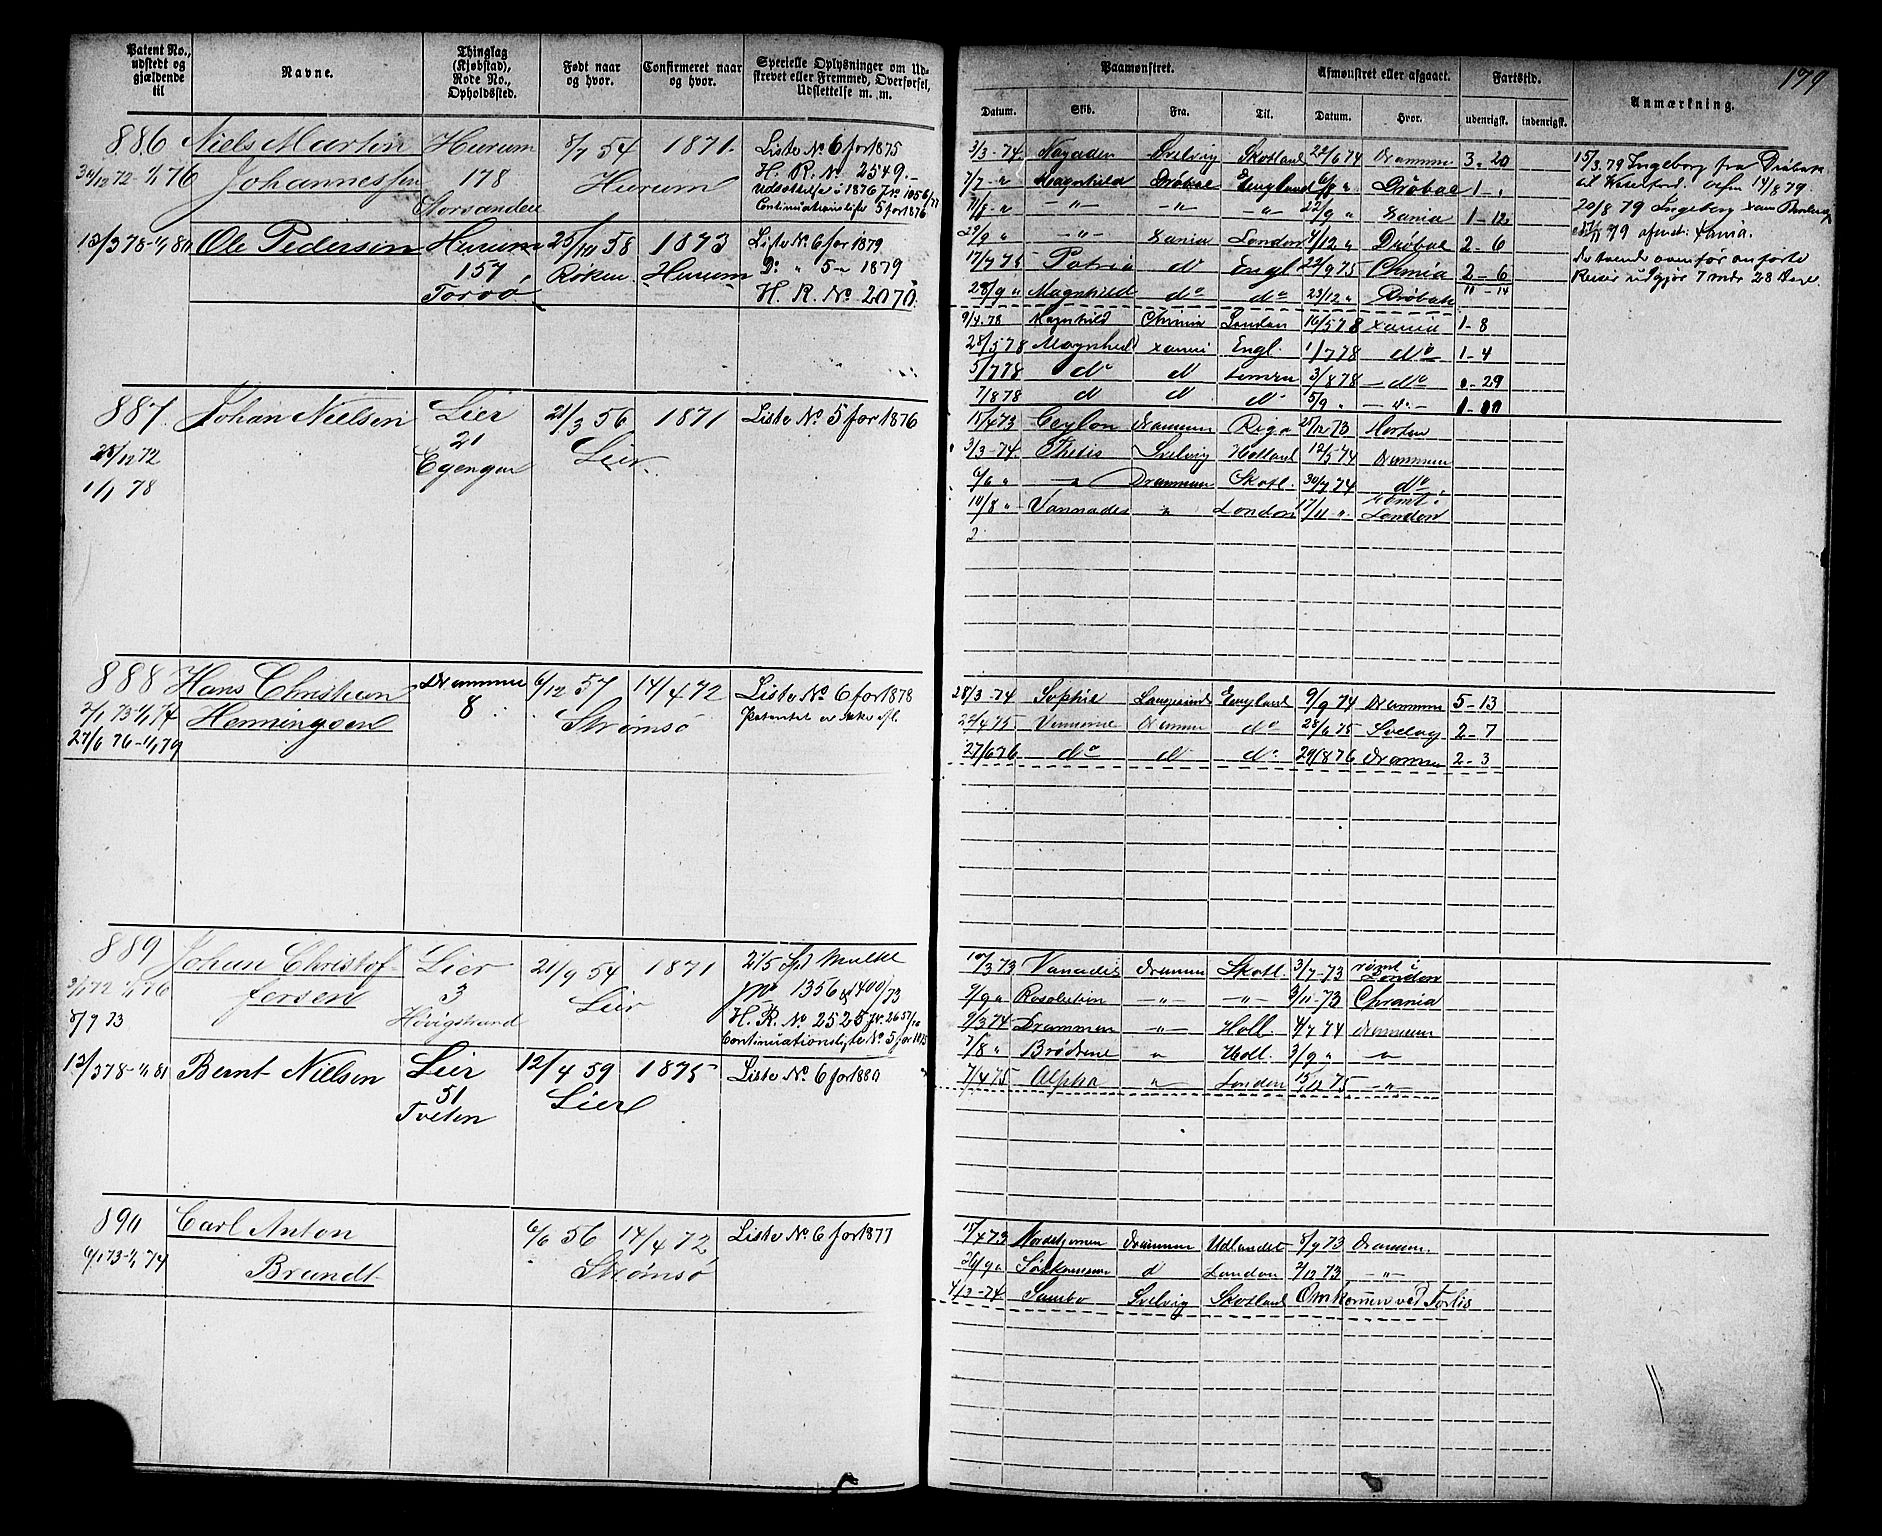 Patent No., udstedt og gjældende til
Navne.
Thinglag (Kjøbstad), Rode No., Opholdssted.
Født naar og hvor.
Confirmeret naar og hvor.
Specielle Oplysninger om Udstrevet eller Fremmed, Overførsel, Udslettelse m. m.
Paamønstret.
Afmønstret eller afgaaet.
Fartstid.
Anmærkning.
179
Datum.
Skib.
Fra.
Til.
Datum.
Hvor.
udenrigsk.
indenrigsk.
886 Niels Martin Hurum 8/7 54 1871. Liste No 6 for 1875
Johannessen 178 Hurum H. R. No 2549.-
Storsanden
Continuationsliste 5 for 1876
13/3 78-1/1 80 Ole Pedersen Hurum 25/10 58 1873 Liste No. 6 for 1879
157 Røken Hurum Do " 5 - 1879
Torvø H. R. No 2070.
3/3-74 Najaden Svelvig Skotland 22/6 74 Drammen 3. 20
7/7-" Magnhild Drøbac England 6/8 " Drøbac 1 - "
11/8-" -"- -"- -"- 22/9 " Xania 1-12
29/9 " -"- Xania London 4/12 " Drøbac 2-6
17/7 75 Patria do Engl 22/9 75 Chrnia 2-6
28/9 " Magnhild do do 23/12 " Drøbak 11-14
9/4.78 Magnhild Chrnia London 14/5 78 Xania 1-8
28/5 78 Magnhild Xania Engl. 1/7 78 do 1-4
5/7 78 do do London 3/8 78 -do 0-29
7/8 78 do do do 5/9 " -"-
15/3.79 Ingeborg fra Drøbak
til afm 14/8 79.
20/8 79 Ingeborg Xania
79 afmst: Xania.
de tvende ovenfor anførte
Reiser udgjør 7 mdr 28 Dage.
887. Johan Nielsen Lier 21/3 56 1871 Liste No. 5 for 1876
28/12 72 21 Lier.
1/1 78 Egengen
15/4 73 Ceylon Drammen Riga 25/12 73 Horten
3/3-74. Thetis Svelvig Holland 12/5-74 Drammen
6/6 " -" Drammen Skotl. 30/7 74 do
10/8 " Vannades " London 17/11-". Rømt i London
888 Hans Christian Drammen 6/12 57 14/4 72 Liste No. 6 for 1878
2/1 73-1/1 74 Henningsen 8 Strømsø
27/6 76-1/1 79
28/3-74 Sophie Langesund England 9/9 74 Drammen 5-13
22/4 75 Drammen do 28/6 75 Svelvig 2-7
27/6 76 do do do 29/8 76 Drammen 2-3
889 Johan Christof- Lier 21/9 54 1871 2/5 Spd Mulkt
fersen 3 Lier JNo 1356 & 1400/73
8/9 73 Høvigstrand H. R. No 2525
Continuationsliste No. 5 for 1875
13/3 78-1/1 81 Bernt Nielsen Lier 12/4 59 1875 Liste No. 6 for 1880
51 Lier
Tveten
10/3 73 Vanadis Drammen Skotl. 3/7-73 rømt i London
9/9 " Resolution -"- -"- 3/11-73 Chrania
9/3 74 Drammen -"- Holl 4/7 74 Drammen
7/8 " Brødrene " Holl. 3/9 " -"
7/4 75 Alpha " London 15/12 75 -"-
890 Carl Anton 6/6 56 14/4 72 Liste No. 6 for 1877
6/1 73-1/1 74 Brandt Strømsø
15/4 73 Nordstjernen Drammen Udlandet 8/9 73 Drammen.
26/9 " do London 2/12 73 -"-
4/3-74 Sambo Svelvig Skotland Omkommen ved Forlis